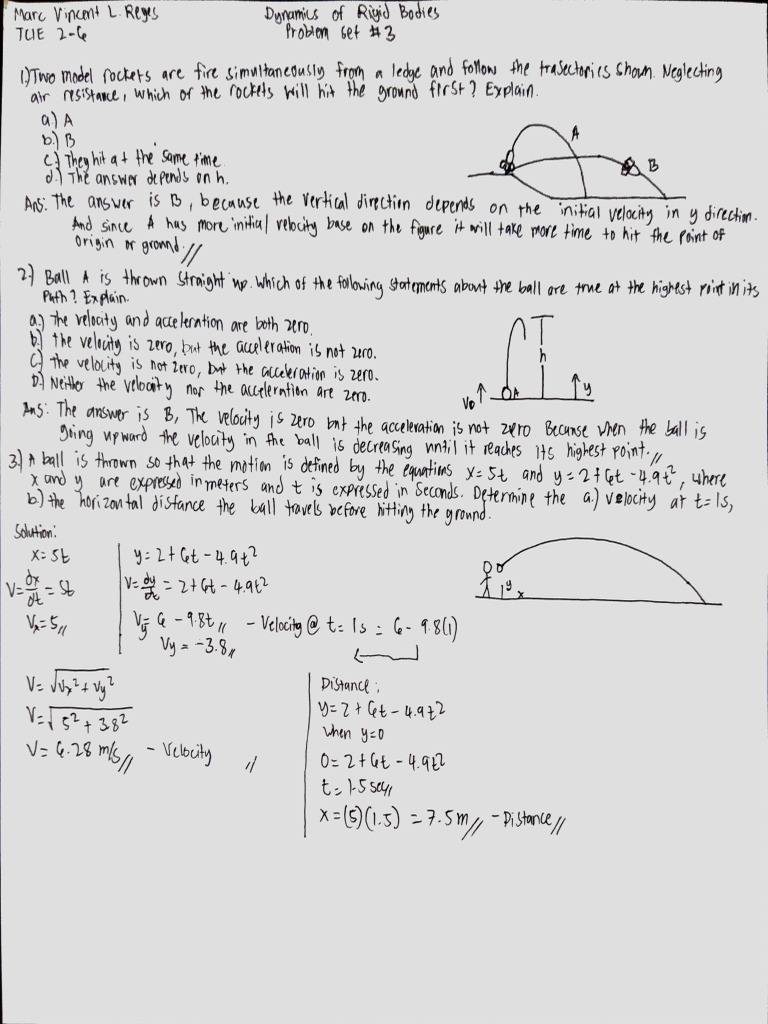 Marc Vincent L. Reyes
Dynamics of Rigid Bodies
TCIE 2-6
Problem Set #3
1.) Two model rockets are fire simultaneously from a ledge and follow the trasectories shown. Neglecting
air resistance, which of the rockets will hit the ground first? Explain.
a.) A
b.) B
c.) They hit at the same time.
d.) The answer depends on h.
A
B
Ans: The answer is B, because the vertical direction depends on the initial velocity in y direction.
And since A has more initial velocity base on the figure it will take more time to hit the point of
origin or ground.//
2.) Ball A is thrown straight up. Which of the following statements about the ball are true at the highest point in its
path? Explain.
a.) The velocity and acceleration are both zero.
b.) The velocity is zero, but the acceleration is not zero.
c.) The velocity is not zero, but the acceleration is zero.
D.) Neither the velocity nor the acceleration are zero.
h
V0
A
y
Ans: The answer is B, The velocity is zero but the acceleration is not zero Because when the ball is
going upward the velocity in the ball is decreasing until it reaches its highest point.//
3.) A ball is thrown so that the motion is defined by the equations x = 5t and y = 2 + 6t - 4.9t², where
x and y are expressed in meters and t is expressed in seconds. Determine the a.) velocity at t = 1s,
b.) the horizontal distance the ball travels before hitting the ground.
Solution:
x = 5t
V = dx/dt = 5t
Vx = 5//
y = 2 + 6t - 4.9t²
V = dy/dt = 2 + 6t - 4.9t²
Vy = 6 - 9.8t// - Velocity @ t = 1s = 6 - 9.8(1)
Vy = -3.8//
y
x
V = √Vx² + Vy²
V = √5² + 3.8²
V = 6.28 m/s// - Velocity //
Distance:
y = 2 + 6t - 4.9t²
when y = 0
0 = 2 + 6t - 4.9t²
t = 1.5 sec//
x = (5)(1.5) = 7.5 m// - Distance//